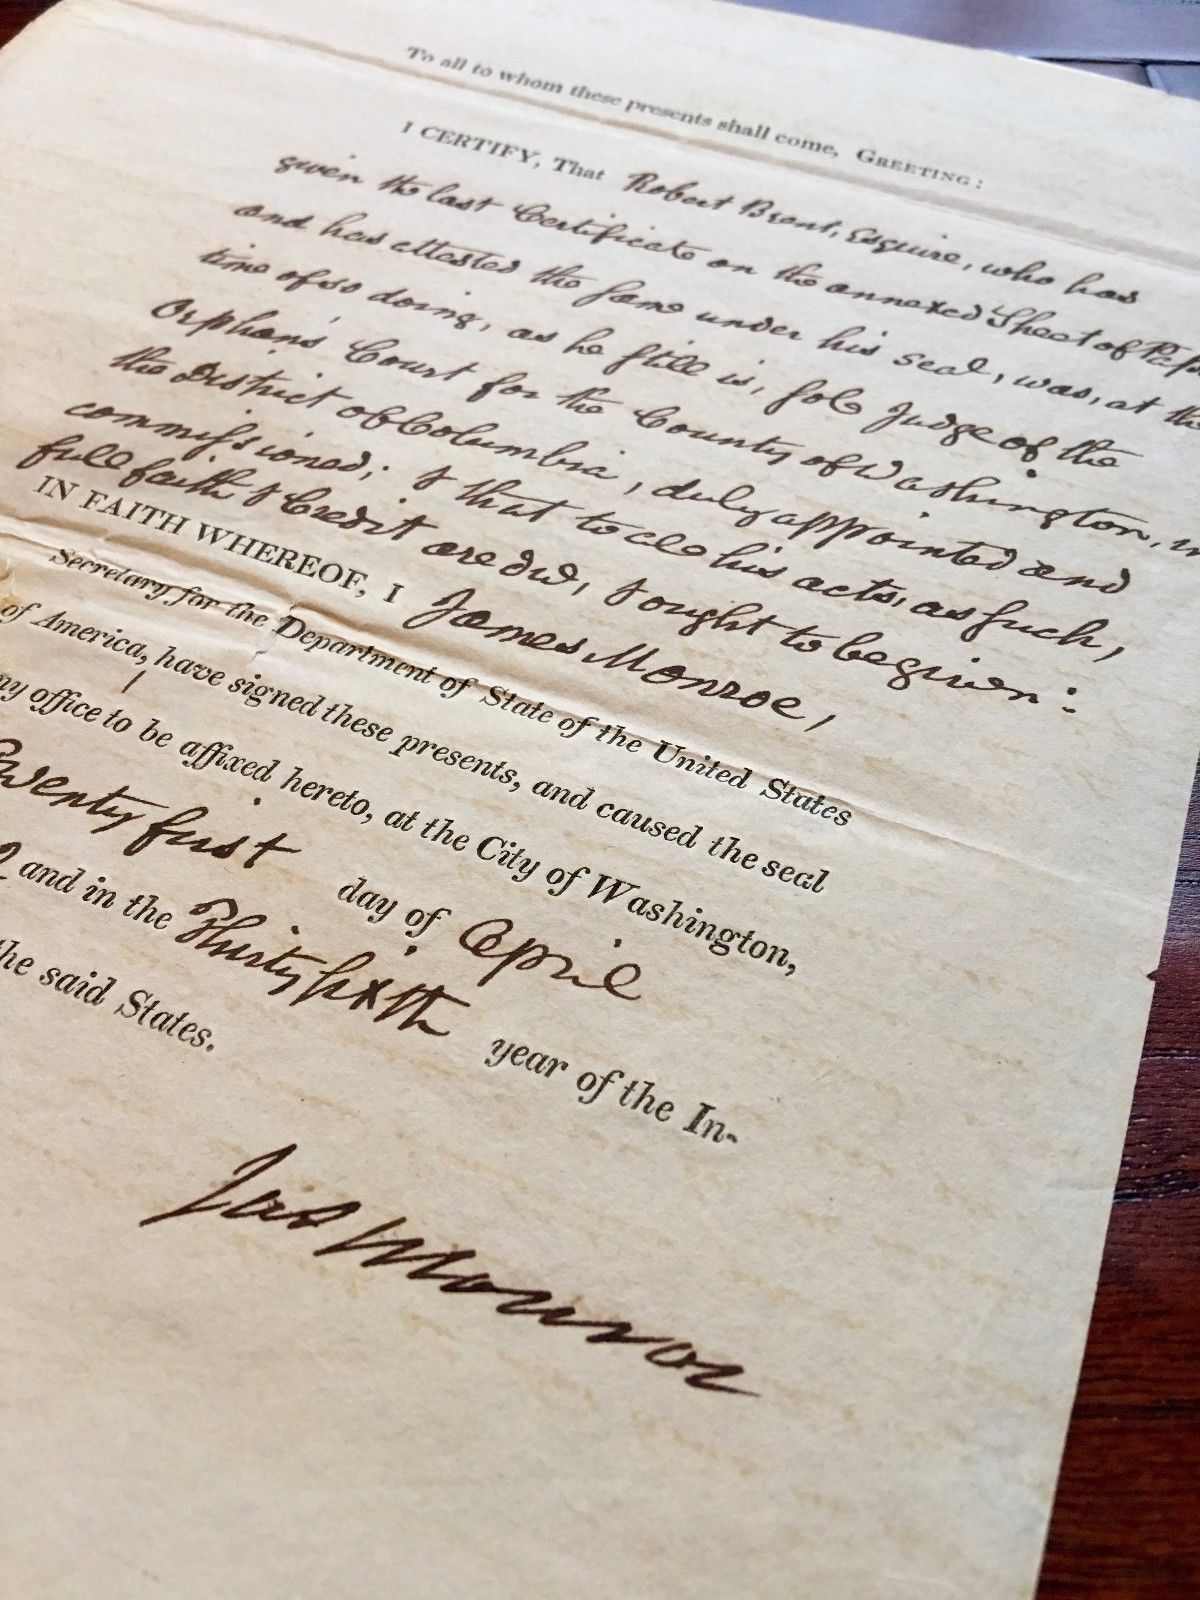 To all to whom these presents shall come, GREETING:
I CERTIFY, That Robert Brent, Esquire, who has
given the last Certificate on the annexed Sheet of
and has attested the same under his seal, was, at the
time of so doing, as he still is, sole Judge of the
Orphan's Court for the County of Washington, in
the District of Columbia, duly appointed and
commissioned; & that to all his acts, as such,
full faith & Credit are due, & ought to be given:
IN FAITH WHEREOF, I James Monroe,
Secretary for the Department of State of the United States
of America, have signed these presents, and caused the seal
my office to be affixed hereto, at the City of Washington,
Twenty first day of April
2 and in the Thirty sixth year of the In-
the said States.
Jas Monroe